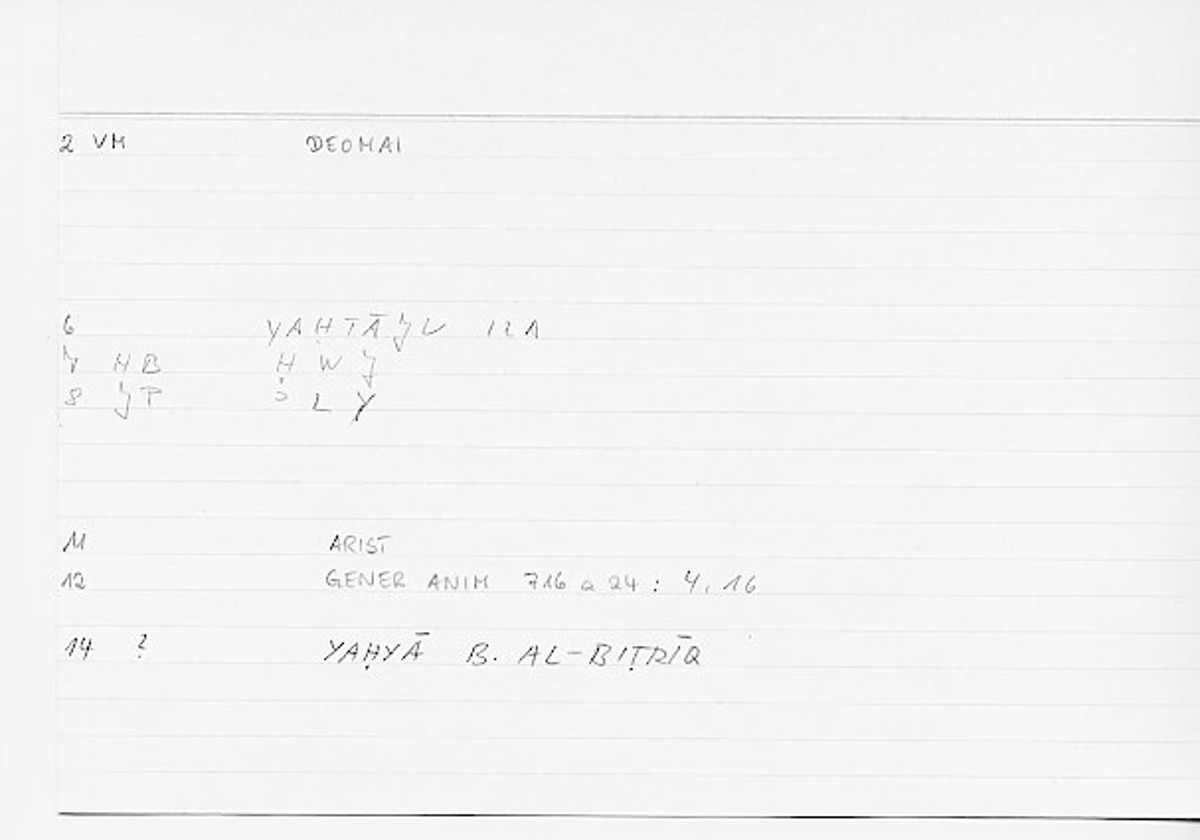 2 VM DEOMAI
6 YAḤTĀǦU ILA
7 HB Ḥ W Ǧ
8 ǦP L Y
11 ARIST
12 GENER ANIM 716 a 24 : 4, 16
14 ? YAḤYĀ B. AL-BIṬRĪQ